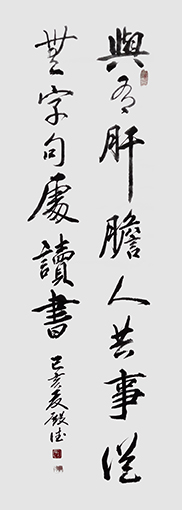 與有肝膽人共事從
無字句處讀書
己亥夏殿法